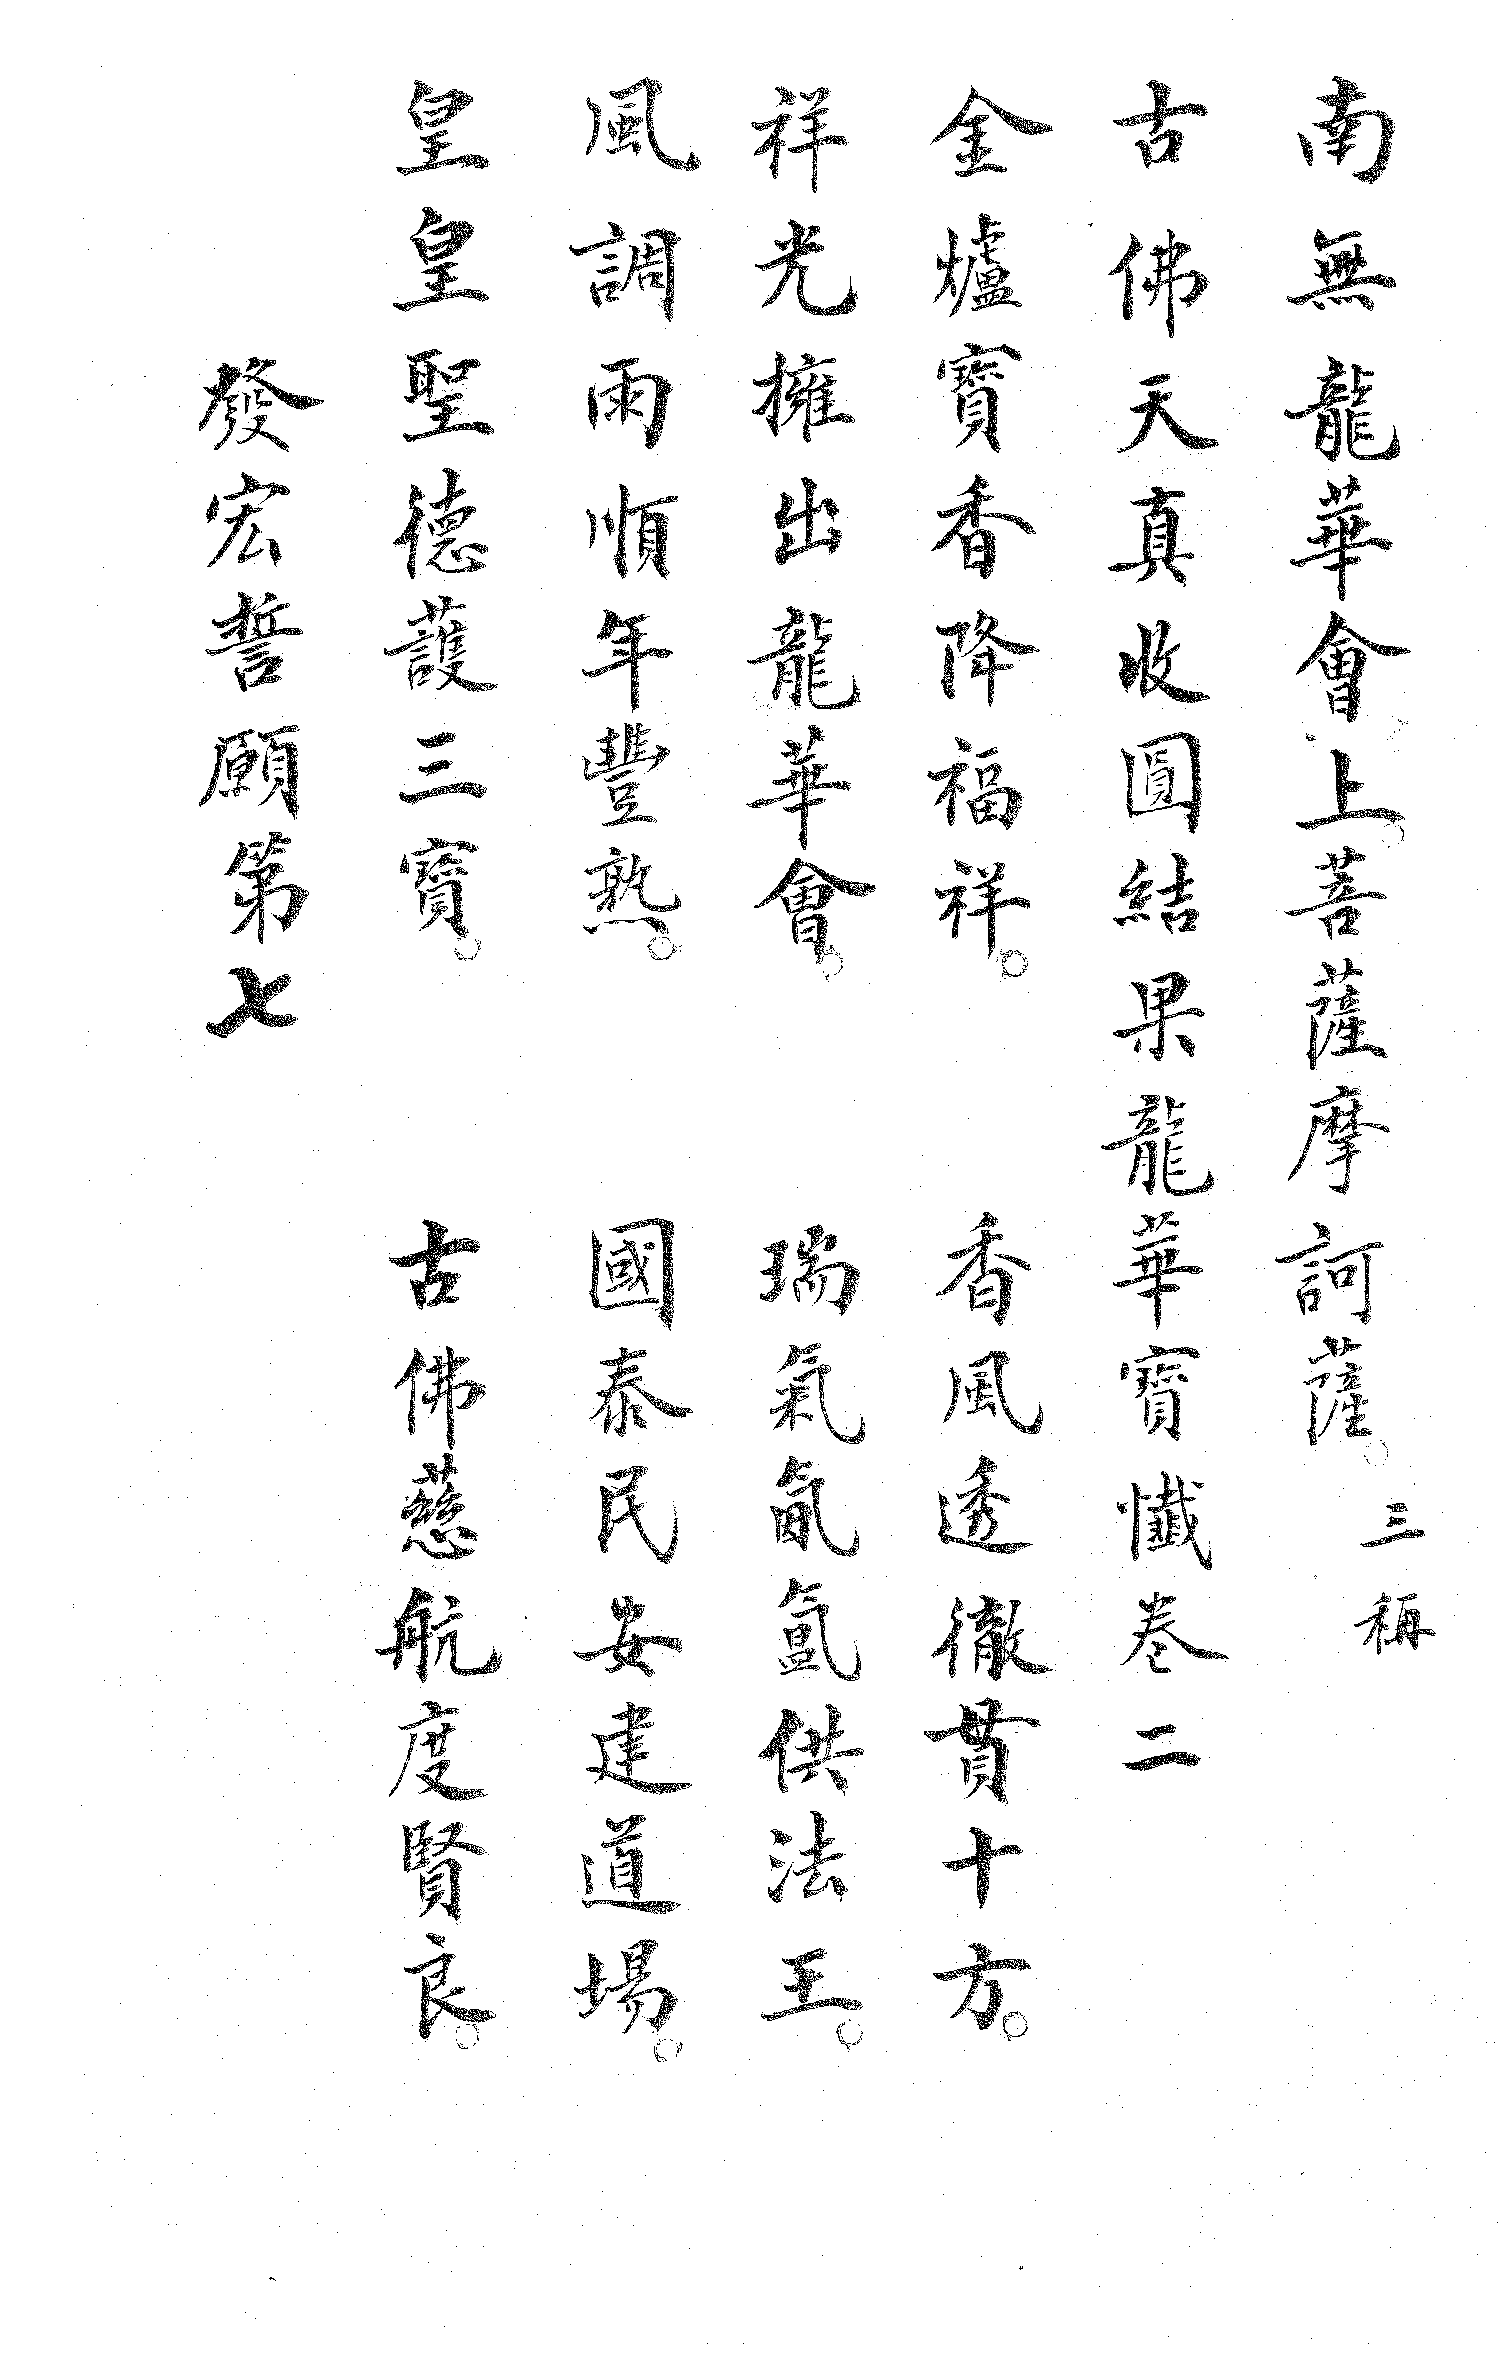 南無龍華會上菩薩摩訶薩。三稱
古佛天真收圓結果龍華寶懺卷二
金爐寶香降福祥。　香風透徹貫十方。
祥光擁出龍華會。　瑞氣氤氳供法王。
風調雨順年豐熟。　國泰民安建道場。
皇皇聖德護三寶。　古佛慈航度賢良。
發宏誓願第七